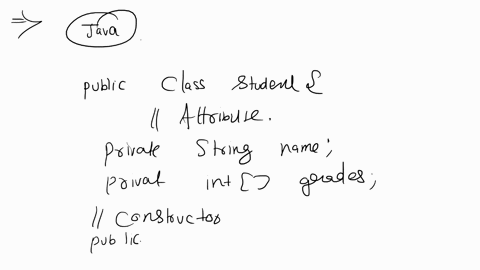 ⇒ Java
public Class Student {
// Attribute.
private String name;
privat int[] grades;
// Constructor
public